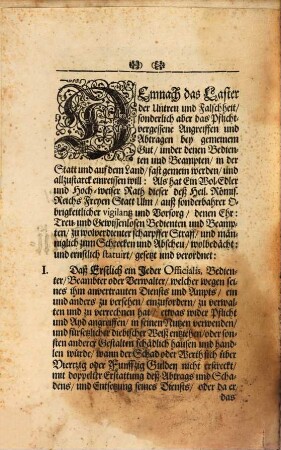 DEmnach das Laster
der Untreu und Falschheit/
sonderlich aber das Pflicht-
vergessene Angreiffen und
Abtragen bey gemeinem
Gut/ under denen Bedien-
ten und Beampten/ in der
Statt und auf dem Land/ fast gemein werden/ und
allzustarck einreissen will: Als hat Ein Wol-Edler
und Hoch-weiser Rath dieser deß Heil. Römis.
Reichs Freyen Statt Ulm/ auß sonderbahrer O-
brigkeitlicher vigilanz und Vorsorg/ denen Ehr-
Treu- und Gewissenlosen Bedienten und Beamp-
ten/ zu wolverdienter scharpffer Straff/ und män-
niglich zum Schrecken und Abscheu/ wolbedächt-
und ernstlich statuirt/ gesetzt und verordnet:
I. Daß Erstlich ein Jeder Officialis, Bedien-
ter/ Beambter oder Verwalter/ welcher wegen sei-
nes ihm anvertrauten Diensts und Ampts/ ein
und anders zu versehen/ einzufordern/ zu verwal-
ten und zu verrechnen hat/ etwas wider Pflicht
und Ayd angreiffen/ in seinen Nutzen verwenden/
und fürsetzlicher diebischer Weiß entziehen/ oder son-
sten anderer Gestalten schädlich hausen und hand-
len würde/ wann der Schad oder Werth sich über
Viertzig oder Funffzig Gulden nicht erstreckt/
mit doppelter Erstattung deß Abtrags und Scha-
dens/ und Entsetzung seines Diensts/ oder da er
das